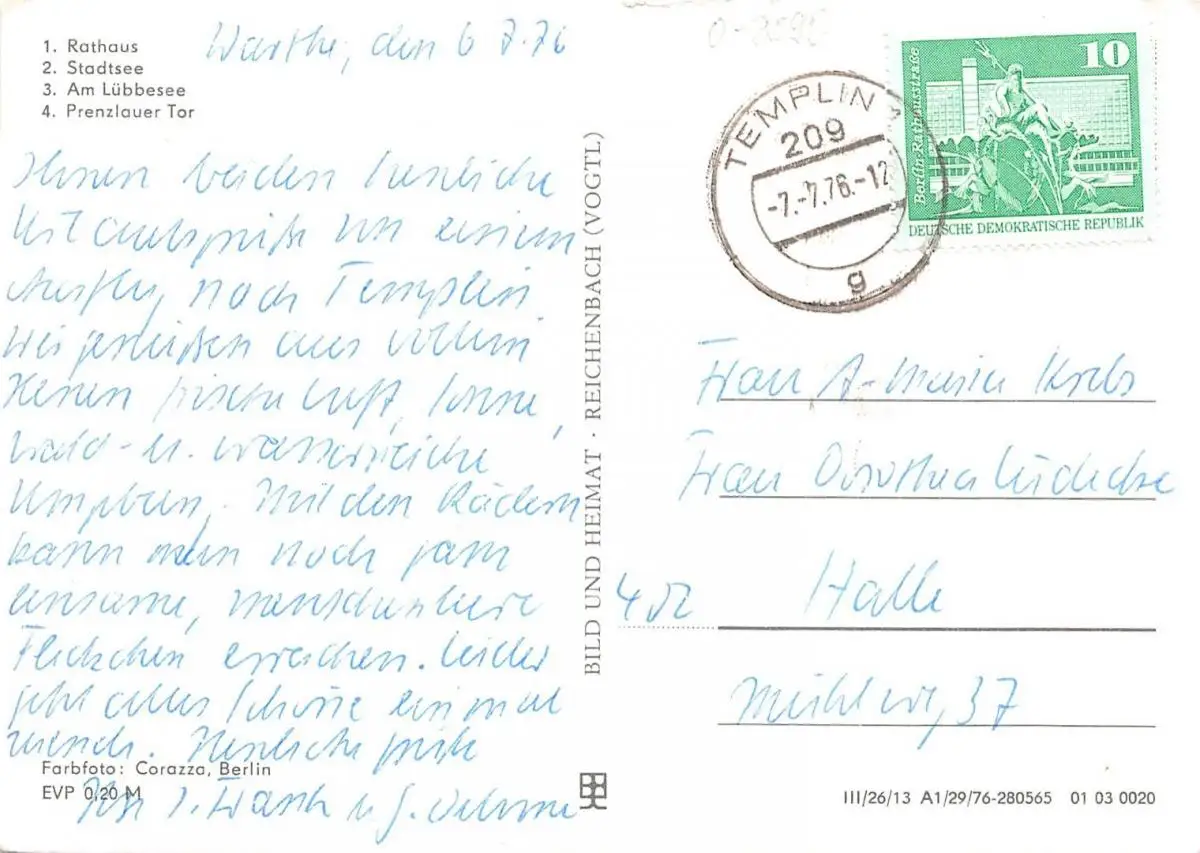 1. Rathaus
2. Stadtsee
3. Am Lübbesee
4. Prenzlauer Tor
Warthe, den 6 7.76
Ihnen beiden herzliche
Urlaubsgrüße von einem
Ausflug nach Templin
Wir genießen aus vollem
Herzen frische Luft, Sonne,
wald- u. wasserreiche
Umgebung. Mit den Rädern
kann man noch ganz
einsame, menschenleere
Fleckchen erreichen. Leider
geht alles Schöne einmal
zuende. Herzliche Grüße
Ihre
Farbfoto: Corazza, Berlin
EVP 0,20 M
BILD UND HEIMAT · REICHENBACH (VOGTL)
TEMPLIN
209
-7.-7.76.-12
g
10
Berlin-Rathausstraße
DEUTSCHE DEMOKRATISCHE REPUBLIK
Frau A-Maria Krebs
Frau Dorothea
402 Halle
Mühlweg 37
III/26/13 A1/29/76-280565 01 03 0020